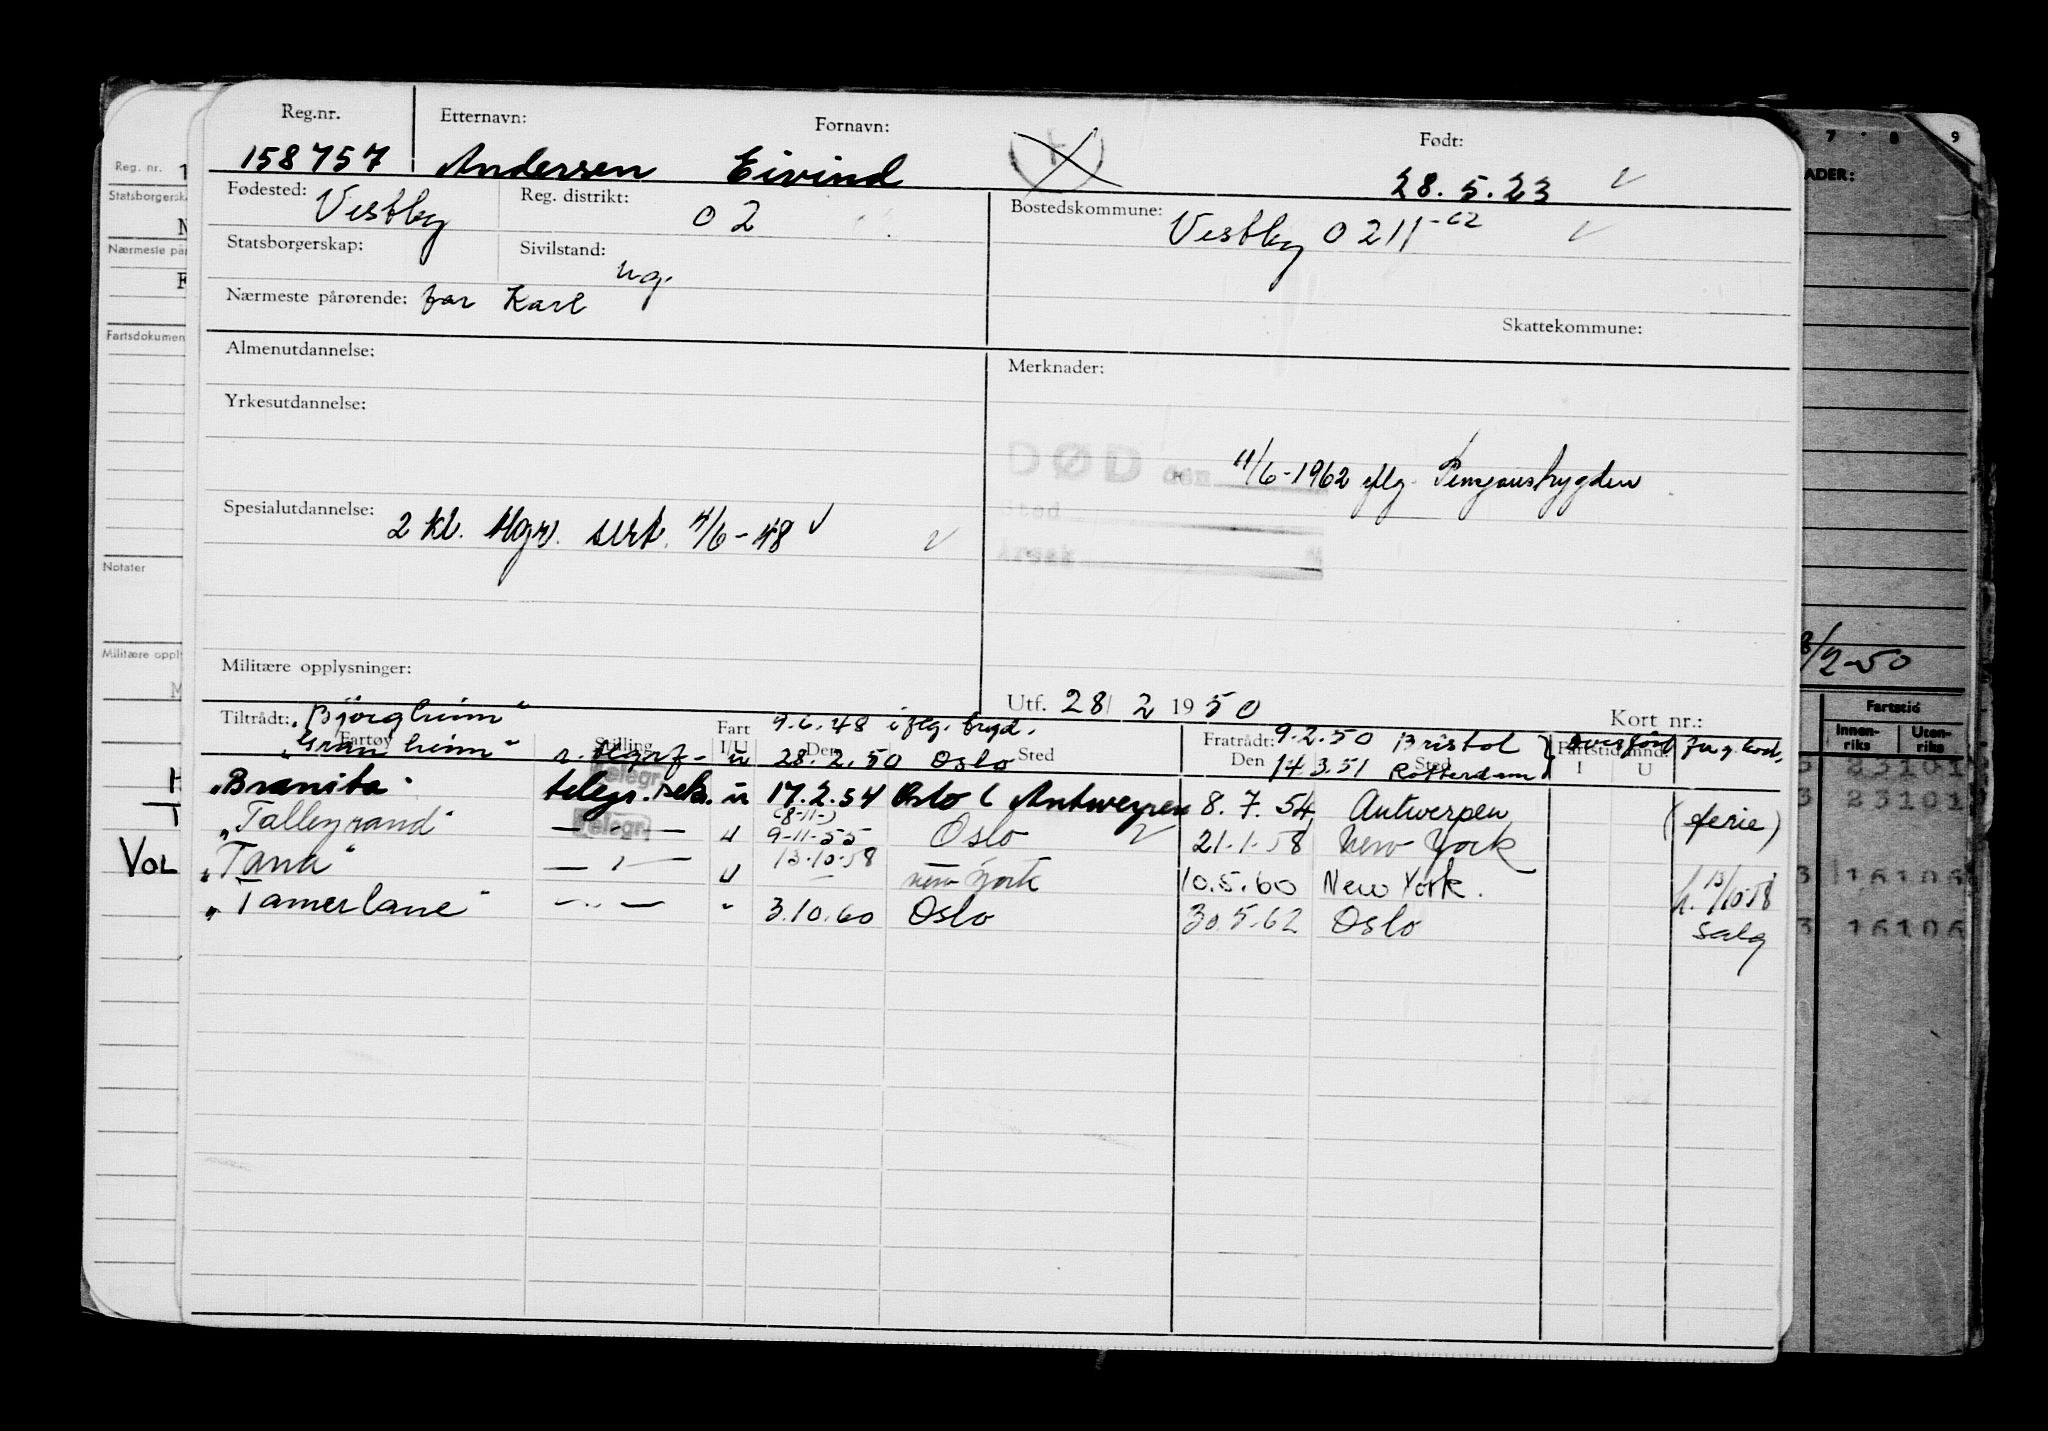 Reg.nr. Etternavn: Fornavn: Født:
158757 Andersen Eivind 28.5.23
Fødested: Vestby Reg. distrikt: 02 Bostedskommune: Vestby 0211-62
Statsborgerskap: Sivilstand: ug.
Nærmeste pårørende: far Karl
Skattekommune:
Almenutdannelse: Merknader:
Yrkesutdannelse:
DØD den 11/6-1962 iflg.
Sted
Årsak
Spesialutdannelse: 2 kl. tlgr. sert. 4/6-48
Militære opplysninger:
Utf. 28/2 1950 Kort nr.:
Tiltrådt: "Bjørgheim" Fart 9.6.48 iflg. Fratrådt: 9.2.50 Bristol
Fartøy Stilling I/U Den Sted Den Sted Fartstid/mnd. I U
"Granheim" u 28.2.50 Oslo 14.3.51 Rotterdam
"Branita" telegr. u 17.2.54 Oslo ( Antwerpen 8.7.54 Antwerpen (ferie)
"Talleyrand" — " — u (8-11-) 9-11-55 Oslo 21.1.58 New York
"Tana" — " — u 13.10.58 New York 10.5.60 New York. h. 13/10-58
"Tamerlane" — " — " 3.10.60 Oslo 30.5.62 Oslo salg
Telegr.
Telegr.
Reg. nr. 1
Statsborgersk
N
Nærmeste på
F
Fartsdokumen
Notater
Militære oppl
M
H
T
VOL
7 8 9
ADER:
/2-50
Fartstid
Innen-riks Uten-riks
3 23101
3 23101
3 16106
3 16106